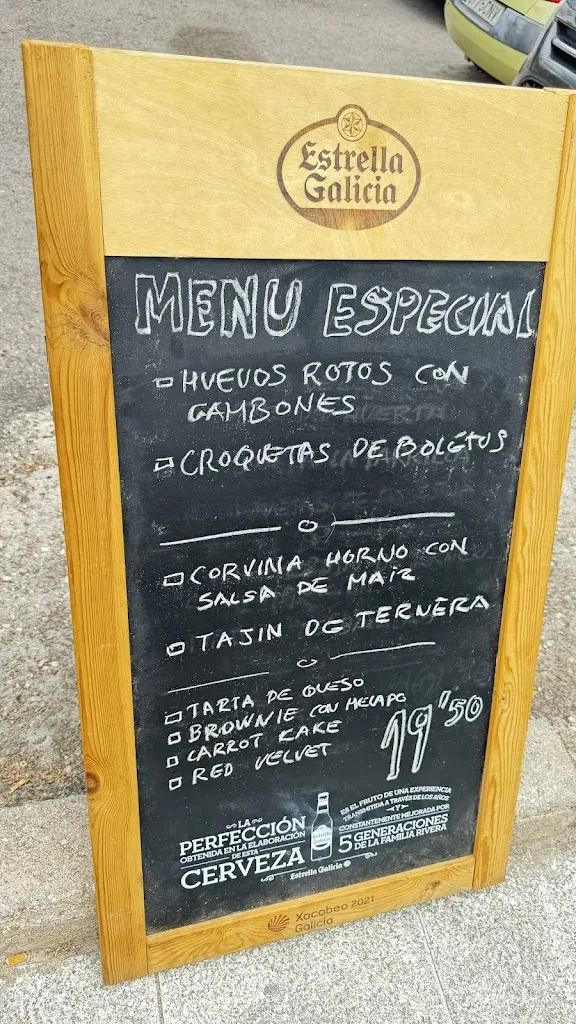 Estrella
Galicia
MENU ESPECIAL
HUEVOS ROTOS CON
GAMBONES
CROQUETAS DE BOLETUS
CORVINA HORNO CON
SALSA DE MAIZ
TAJIN DE TERNERA
TARTA DE QUESO
BROWNIE CON HELADO
CARROT KAKE
RED VELVET
19'50
LA
PERFECCIÓN
OBTENIDA EN LA ELABORACIÓN
DE ESTA
CERVEZA
ES EL FRUTO DE UNA EXPERIENCIA
TRANSMITIDA A TRAVÉS DE LOS AÑOS
Y
CONSTANTEMENTE MEJORADA POR
5 GENERACIONES
DE LA FAMILIA RIVERA
Estrella Galicia
Xacobeo 2021
Galicia